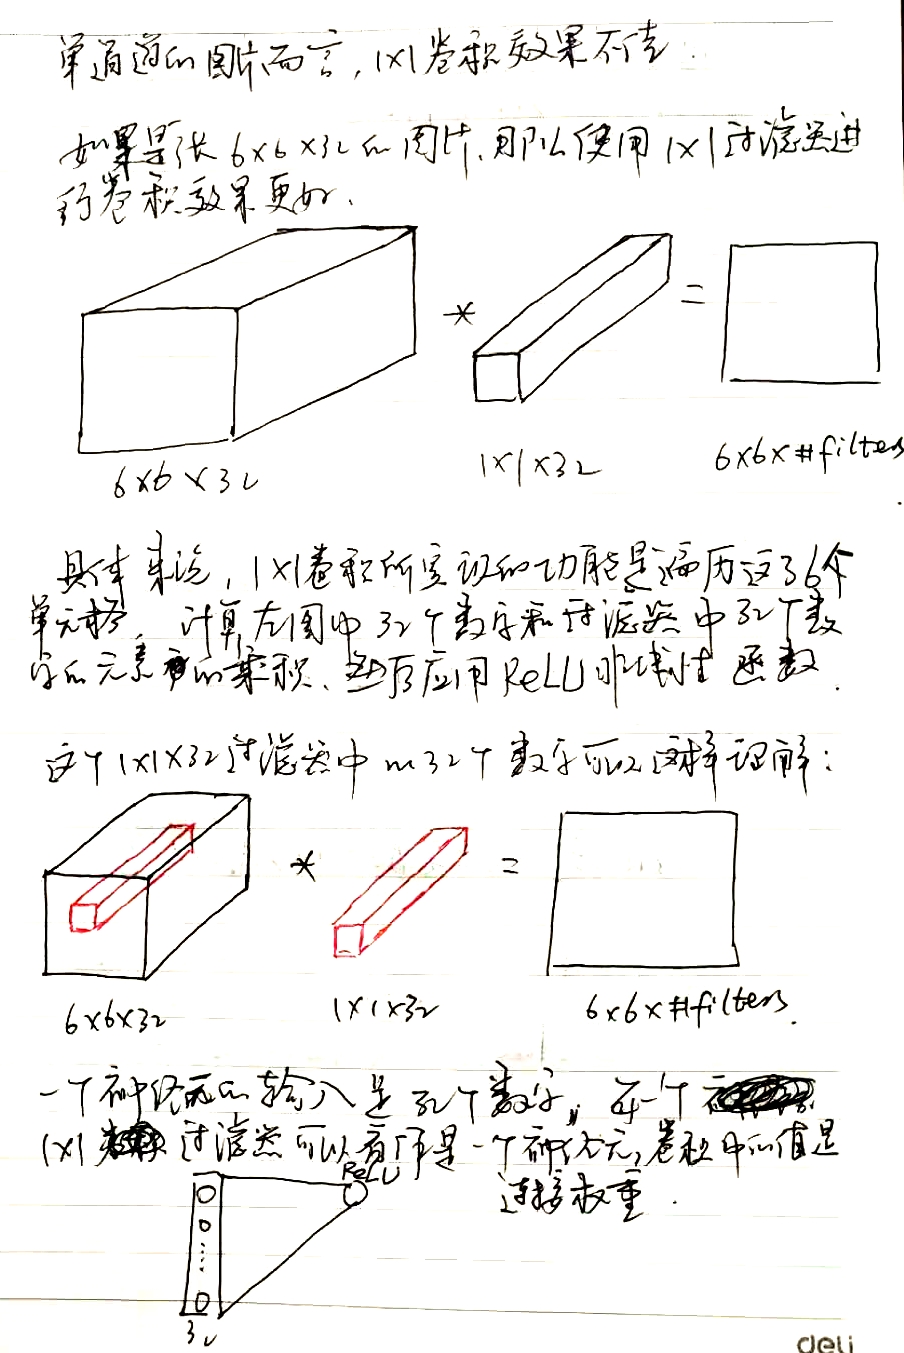 单通道的图片而言，1×1卷积效果不佳.
如果是张6×6×32的图片，那么使用1×1过滤器进
行卷积效果更好.
* =
6×6×32 1×1×32 6×6×#filters
具体来说，1×1卷积所实现的功能是遍历这36个
单元格，计算左图中32个数字和过滤器中32个数
字的元素的乘积、然后应用ReLU非线性函数.
这个1×1×32过滤器中的32个数字可以这样理解：
* =
6×6×32 1×1×32 6×6×#filters.
一个神经元的输入是32个数字，每一个
1×1过滤器可以看作是一个神经元，卷积中的值是
ReLU
连接权重.
32
deli